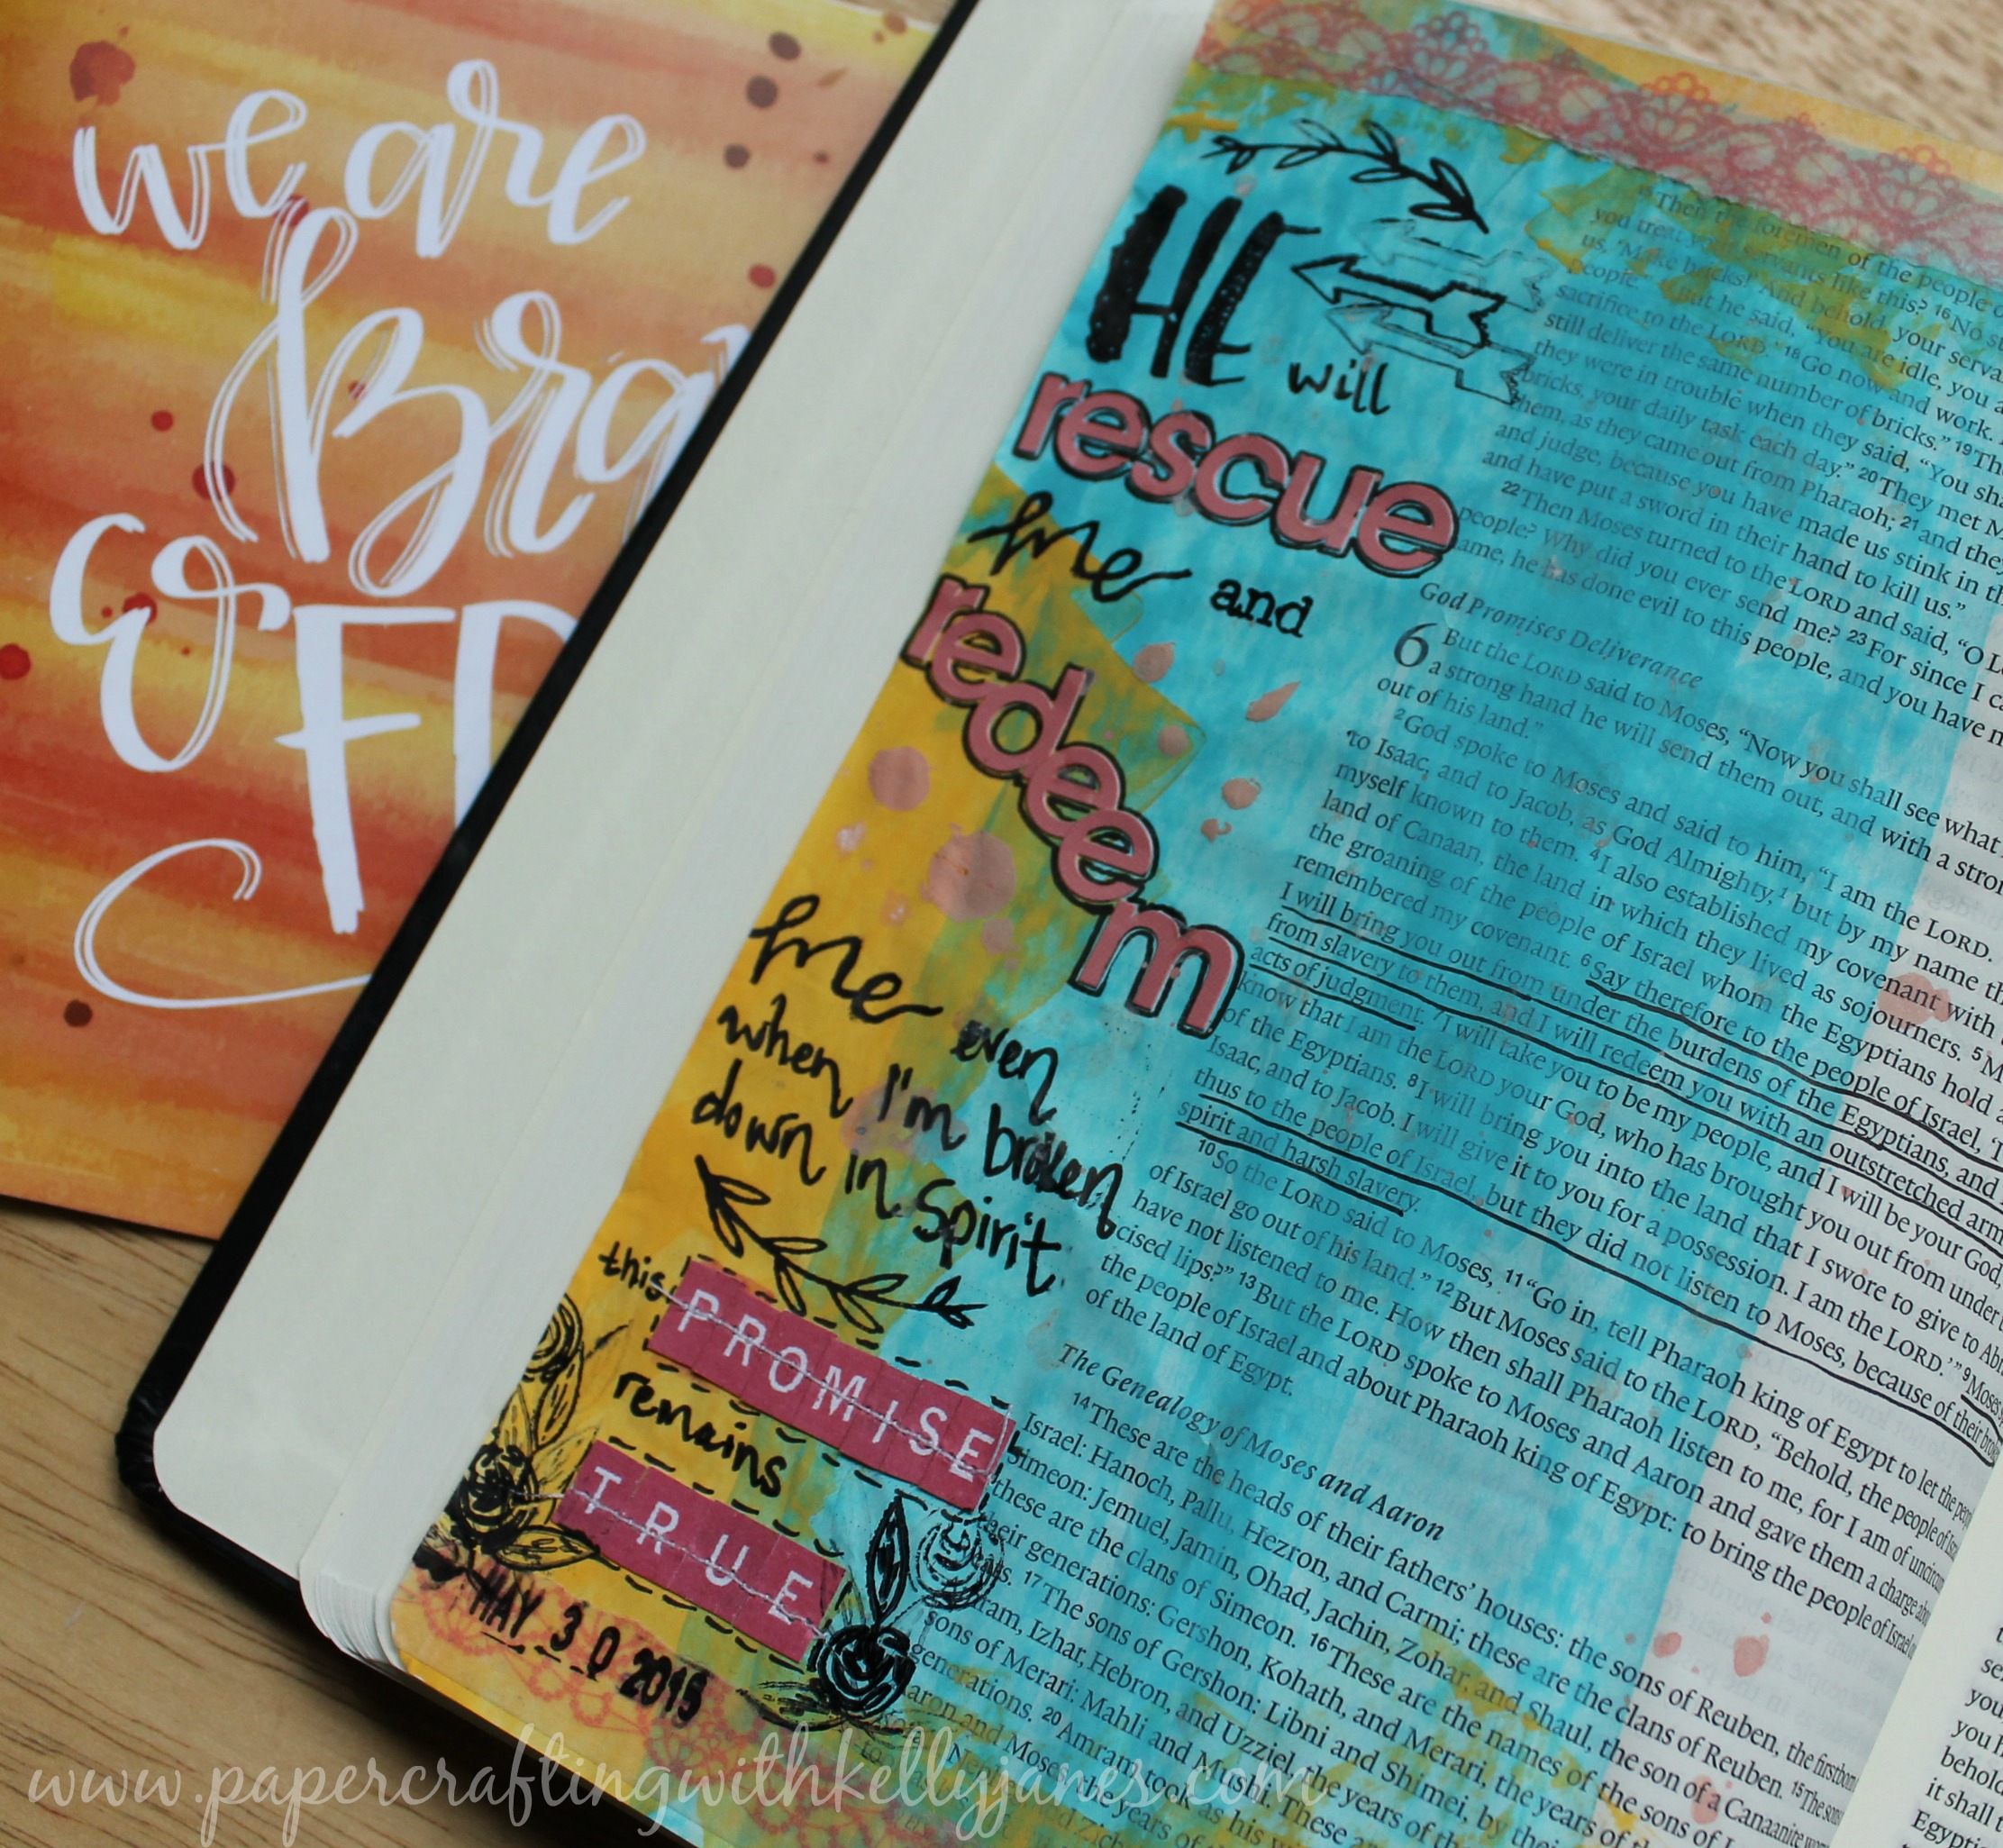 we are
Bra
co
HE
will
rescue
me and
redeem
me even
when I'm broken
down in spirit.
this
PROMISE
remains
TRUE
MAY 30 2015
Then the foremen of the people
you treat your servants like this? 16 No
us, 'Make bricks!' And behold, your
people." But he said, "You are idle, you
sacrifice to the LORD." 18 Go now and work.
still deliver the same number of bricks." 19
they were in trouble when they said, "You
bricks, your daily task each day." 20 They met
them, as they came out from Pharaoh; 21 and they
and judge, because you have made us stink in
and have put a sword in their hand to kill us."
22 Then Moses turned to the LORD and said, "O
people? Why did you ever send me? 23 For since I
name, he has done evil to this people, and you have
God Promises Deliverance
6 But the LORD said to Moses, "Now you shall see what
a strong hand he will send them out, and with a
out of his land."
2 God spoke to Moses and said to him, "I am the LORD.
to Isaac, and to Jacob, as God Almighty, 1 but by my name
myself known to them. 4 I also established my covenant with
land of Canaan, the land in which they lived as sojourners. 5
the groaning of the people of Israel whom the Egyptians hold
remembered my covenant. 6 Say therefore to the people of Israel,
I will bring you out from under the burdens of the Egyptians, and
from slavery to them, and I will redeem you with an outstretched arm
acts of judgment. 7 I will take you to be my people, and I will be your God,
know that I am the LORD your God, who has brought you out from under
of the Egyptians. 8 I will bring you into the land that I swore to give to
Isaac, and to Jacob. I will give it to you for a possession. I am the LORD.'" 9 Moses
thus to the people of Israel, but they did not listen to Moses, because of their
spirit and harsh slavery.
10 So the LORD said to Moses, 11 "Go in, tell Pharaoh king of Egypt to let the
of Israel go out of his land." 12 But Moses said to the LORD, "Behold, the people of
have not listened to me. How then shall Pharaoh listen to me, for I am of
cised lips?" 13 But the LORD spoke to Moses and Aaron and gave them a charge
the people of Israel and about Pharaoh king of Egypt: to bring the people of
of the land of Egypt.
The Genealogy of Moses and Aaron
14 These are the heads of their fathers' houses: the sons of Reuben, the firstborn
Israel: Hanoch, Pallu, Hezron, and Carmi; these are the clans of Reuben. 15 The
Simeon: Jemuel, Jamin, Ohad, Jachin, Zohar, and Shaul, the son of a Canaanite
these are the clans of Simeon. 16 These are the names of the sons of
their generations: Gershon, Kohath, and Merari, the years of the
17 The sons of Gershon: Libni and Shimei, by their
Izhar, Hebron, and Uzziel, the years of the
sons of Merari: Mahli and Mushi. These
generations. 20 Amram took as his
Aaron and Moses, the years of
www.papercraftingwithkellyjanes.com